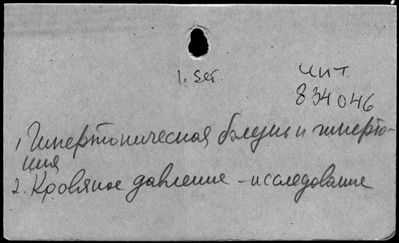 1. Ser.
чит.
834046
1. Гипертоническая болезнь и гиперто-
ния
2. Кровяное давление - исследование